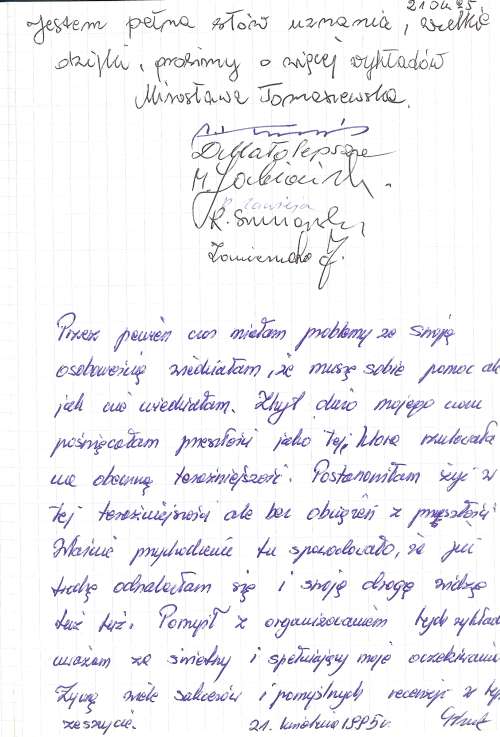 21 04 95
Jestem pełna słów uznania, wielkie
dzięki, prosimy o więcej wykładów
Mirosława Tomaszewska.
D. Małolepsza
M.
R.
R.
J.
Przez pewien czas miałam problemy ze swoją
osobowością wiedziałam, że muszę sobie pomóc ale
jak nie wiedziałam. Zbyt dużo mojego czasu
poświęcałam przeszłości jako tej, która rzutowała
na obecną teraźniejszość. Postanowiłam żyć w
tej teraźniejszości ale bez obciążeń z przeszłości
Właśnie przychodzenie tu spowodowało, że już
trochę odnalazłam się i swoją drogę widzę
tuż tuż. Pomysł z organizowaniem tych wykład
uważam za świetny i spełniający moje oczekiwania.
Życzę wiele sukcesów i pomyślnych recenzji w tym
zeszycie. 21. kwietnia 1995 r.